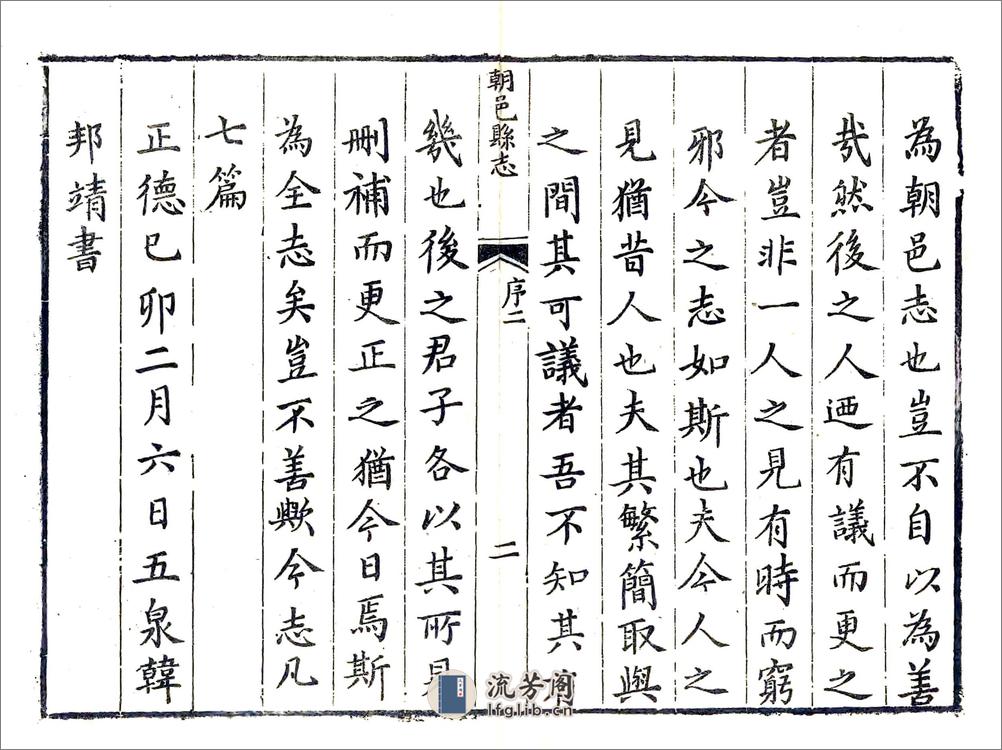 為朝邑志也豈不自以為善
哉然後之人迺有議而更之
者豈非一人之見有時而窮
邪今之志如斯也夫今人之
見猶昔人也夫其繁簡取與
之間其可議者吾不知其
朝邑縣志
序二
二
幾也後之君子各以其所見
刪補而更正之猶今日焉斯
為全志矣豈不善歟今志凡
七篇
正德己卯二月六日五泉韓
邦靖書
流芳阁
lfglib.cn